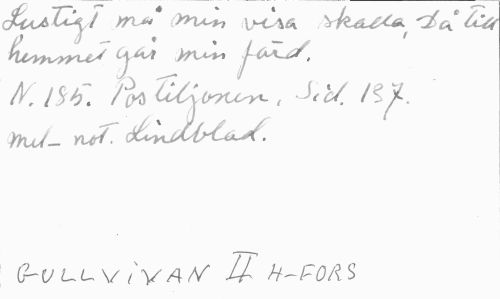 Lustigt må min visa skalla, Då till
hemmet går min färd.
N. 185. Postiljonen, Sid. 137.
mel- not. Lindblad.
GULLVIVAN II H-FORS